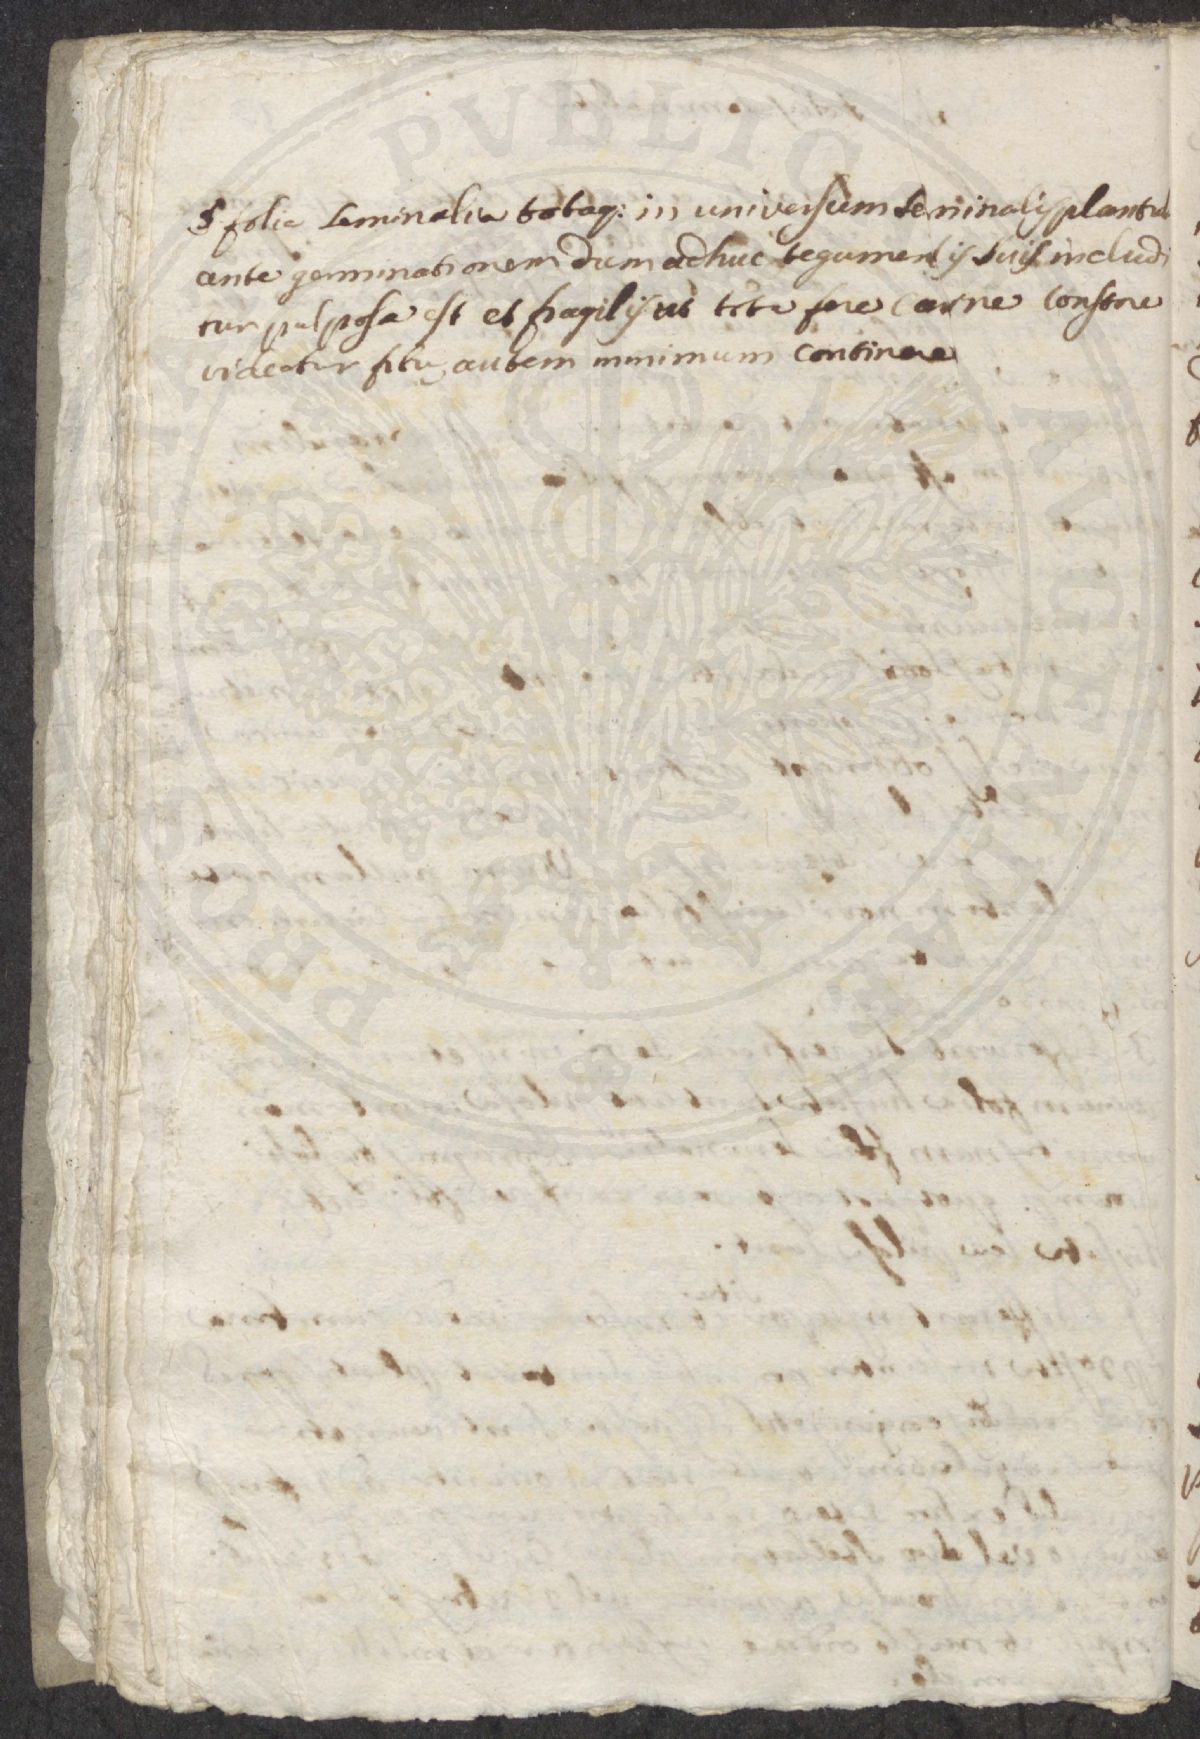 § folia seminalia totaq: in universum seminalis plantul
ante germinationem dum adhuc tegumentis suis includi
tur pulposa est et fragilis ut tota fere carne constare
videatur autem minimum continere